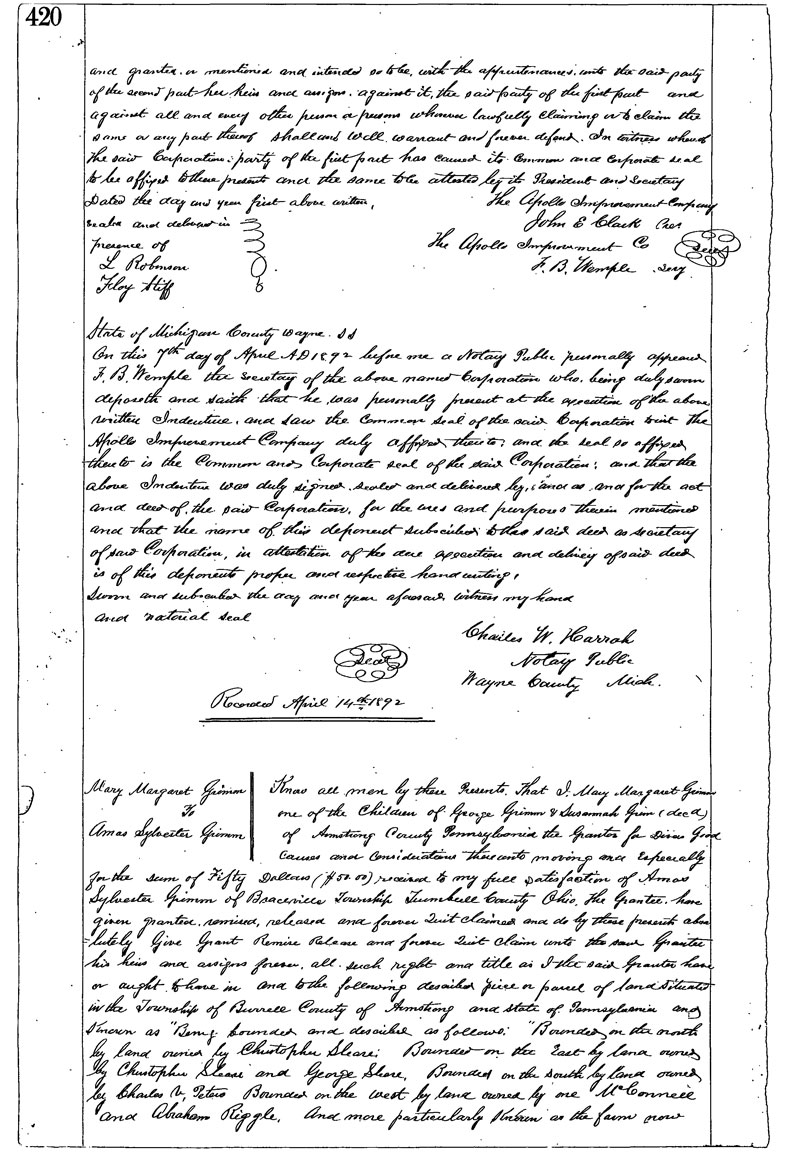 420
and granted. or mentioned and intended so to be, with the appurtenances. unto the said party
of the second part her heirs and assigns. against it, the said party of the first part and
against all and every other person or persons whomever lawfully claiming or to claim the
same or any part thereof shall and will warrant and forever defend. In witness whereof
the said Corporation: party of the first part has caused its Common and Corporate seal
to be affixed to these presents and the same to be attested by its President and Secretary
Dated the day and year first above written,
The Apollo Improvement Company
Sealed and delivered in
John E Clark Pres
presence of
The Apollo Improvement Co
Seal
L Robinson
F. B. Wemple Secy
Floy Stiff
State of Michigan County Wayne. SS
On this 7th day of April A.D 1892 before me a Notary Public personally appeared
F. B. Wemple the Secretary of the above named Corporation who. being duly sworn
deposeth and saith that he was personally present at the execution of the above
written Indenture. and saw the Common seal of the said Corporation to wit The
Apollo Improvement Company duly affixed thereto; and the seal so affixed
thereto is the Common and Corporate seal of the said Corporation; and that the
above Indenture was duly signed. sealed and delivered by, "and as and for the act
and deed of. the said Corporation, for the uses and purposes therein mentioned
and that the name of this deponent subscribed to the said deed as secretary
of said Corporation, in attestation of the due execution and delivery of said deed
is of this deponents proper and respective hand writing,
Sworn and subscribed the day and year aforesaid witness my hand
and notorial seal
Charles W. Harrah
Seal
Notary Public
Wayne County Mich.
Recorded April 14th 1892
Mary Margaret Grimm
To
Amas Sylvester Grimm
Know all men by these Presents. That I. Mary Margaret Grimm
one of the Children of George Grimm & Susannah Grim (decd)
of Armstrong County Pennsylvania the Grantor for Divers Good
causes and considerations thereunto moving and Especially
for the sum of Fifty Dollars ($50.00) received to my full satisfaction of Amas
Sylvester Grimm of Braceville Township Trumbull County Ohio. The Grantee. have
given granted. remised, released and forever Quit claimed and do by these presents abso
-lutely Give Grant Remise Release and forever Quit Claim unto the said Grantee
his heirs and assigns forever. all. such right and title as I the said Grantor have
or aught to have in and to the following described piece or parcel of land situated
in the Township of Burrell County of Armstrong and state of Pennsylvania and
Known as "Being bounded and described as follows: "Bounded on the north
by land owned by Christopher Sheare; Bounded on the East by land owned
by Christopher Sheare and George Shere, Bounded on the south by land owned
by Charles V, Peters Bounded on the west by land owned by one McConnell
and Abraham Riggle, And more particularly Known as the farm now